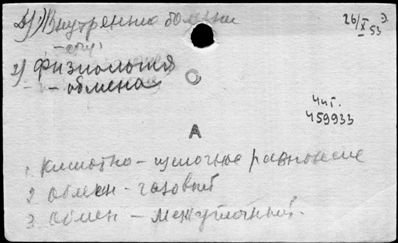 1) Внутренние болезни
26/X 53 Э.
2) Физиология
- обмена
Чит.
459933
А
1. Кислотно - щелочное равновесие
2. Обмен - газовый
3. Обмен - межуточный.